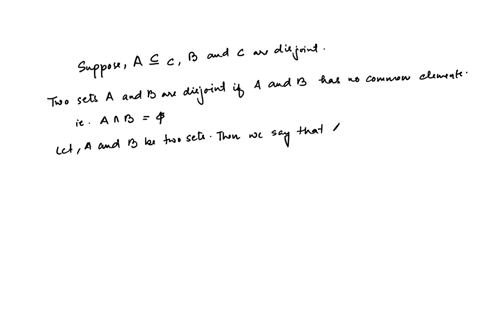 Suppose, A ⊆ C, B and C are disjoint.
Two sets A and B are disjoint if A and B has no common elements.
ie. A ∩ B = ϕ
Let, A and B be two sets. Then we say that